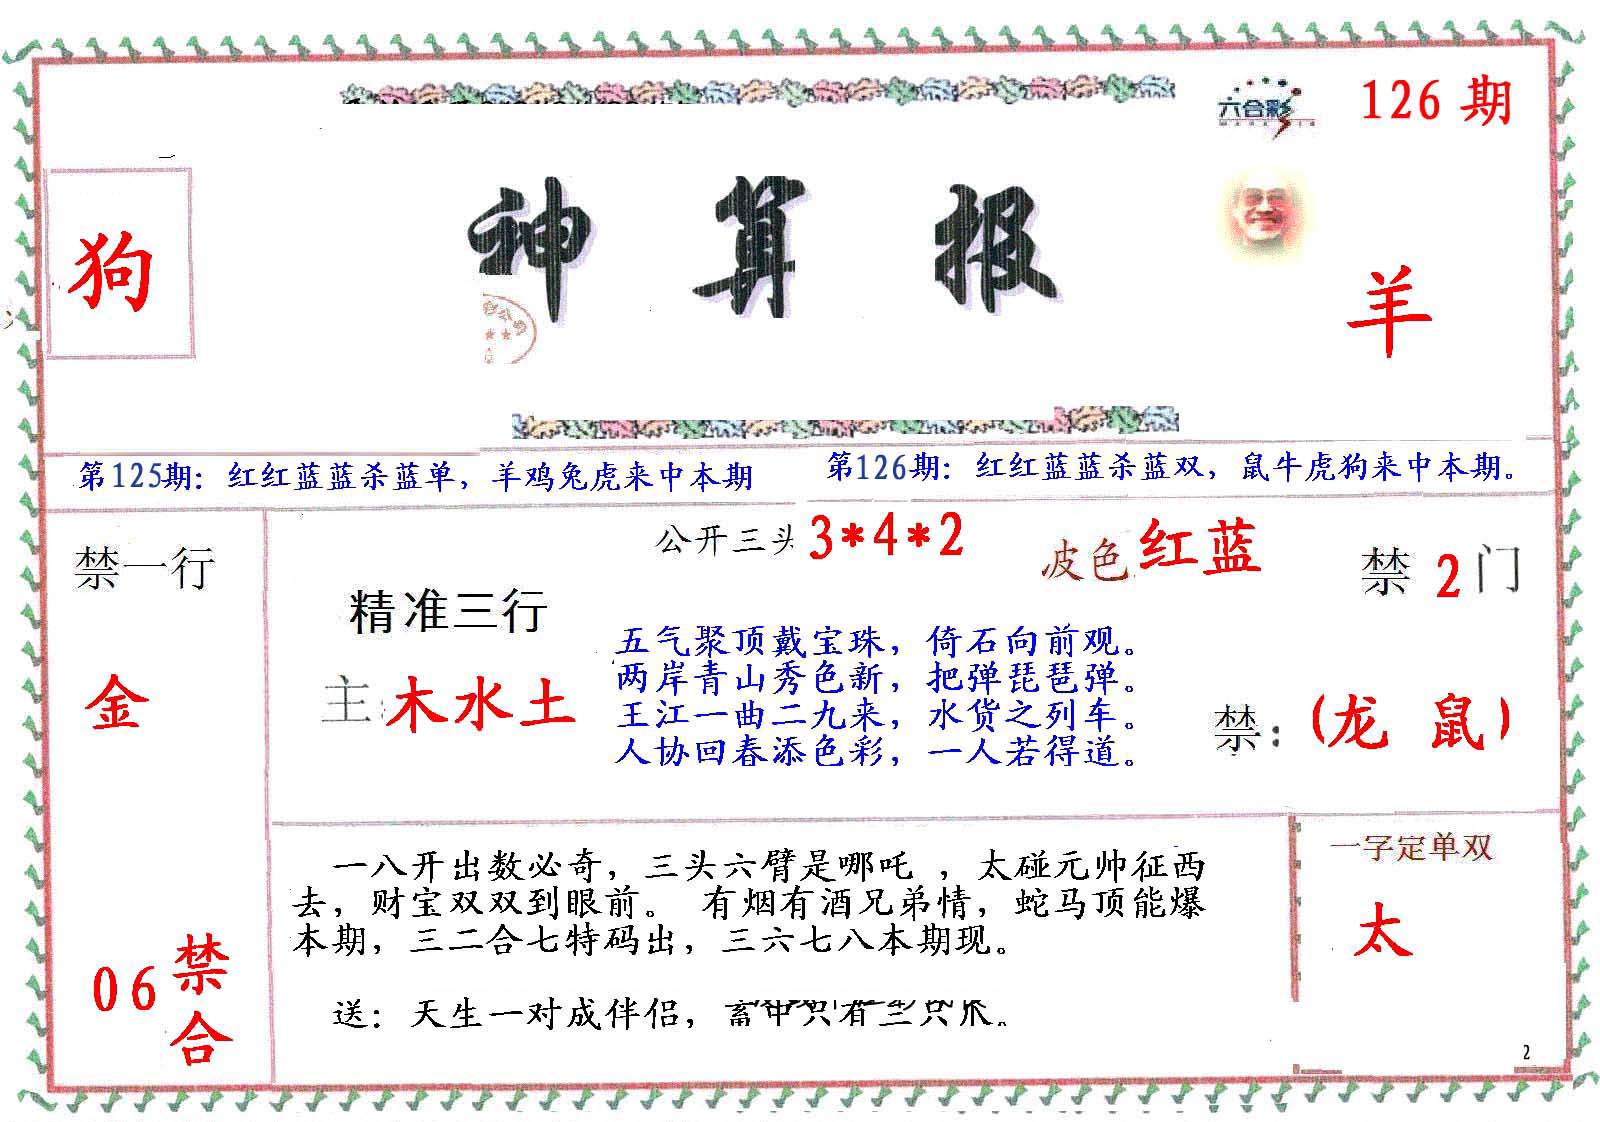 六合彩
126 期
狗
神 算 报
羊
第125期：红红蓝蓝杀蓝单，羊鸡兔虎来中本期
第126期：红红蓝蓝杀蓝双，鼠牛虎狗来中本期。
禁一行
金
06 禁合
公开三头 3*4*2
波色 红蓝
禁 2 门
精准三行
主: 木水土
五气聚顶戴宝珠，倚石向前观。
两岸青山秀色新，把弹琵琶弹。
王江一曲二九来，水货之列车。
人协回春添色彩，一人若得道。
禁: (龙 鼠)
一八开出数必奇，三头六臂是哪吒 ，太碰元帅征西
去，财宝双双到眼前。 有烟有酒兄弟情，蛇马顶能爆
本期，三二合七特码出，三六七八本期现。
送：天生一对成伴侣，畜中只有三只爪。
一字定单双
太
2